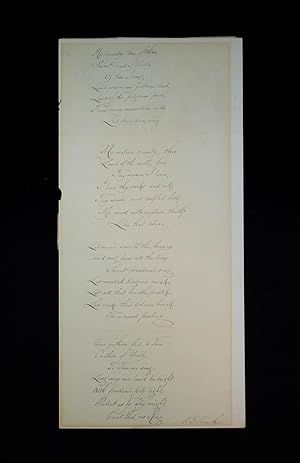 My country 'tis of thee,
Sweet land of liberty,
Of thee I sing;
Land where my fathers died,
Land of the pilgrims' pride,
From every mountain side
Let freedom ring.
My native country, thee,
Land of the noble, free,
Thy name I love;
I love thy rocks and rills,
Thy woods and templed hills,
My heart with rapture thrills
Like that above.
Let music swell the breeze,
And ring from all the trees
Sweet freedom's song;
Let mortal tongues awake,
Let all that breathe partake,
Let rocks their silence break,
The sound prolong.
Our fathers' God, to Thee,
Author of liberty,
To Thee we sing;
Long may our land be bright
With freedom's holy light,
Protect us by Thy might,
Great God, our King.
S. F. Smith.